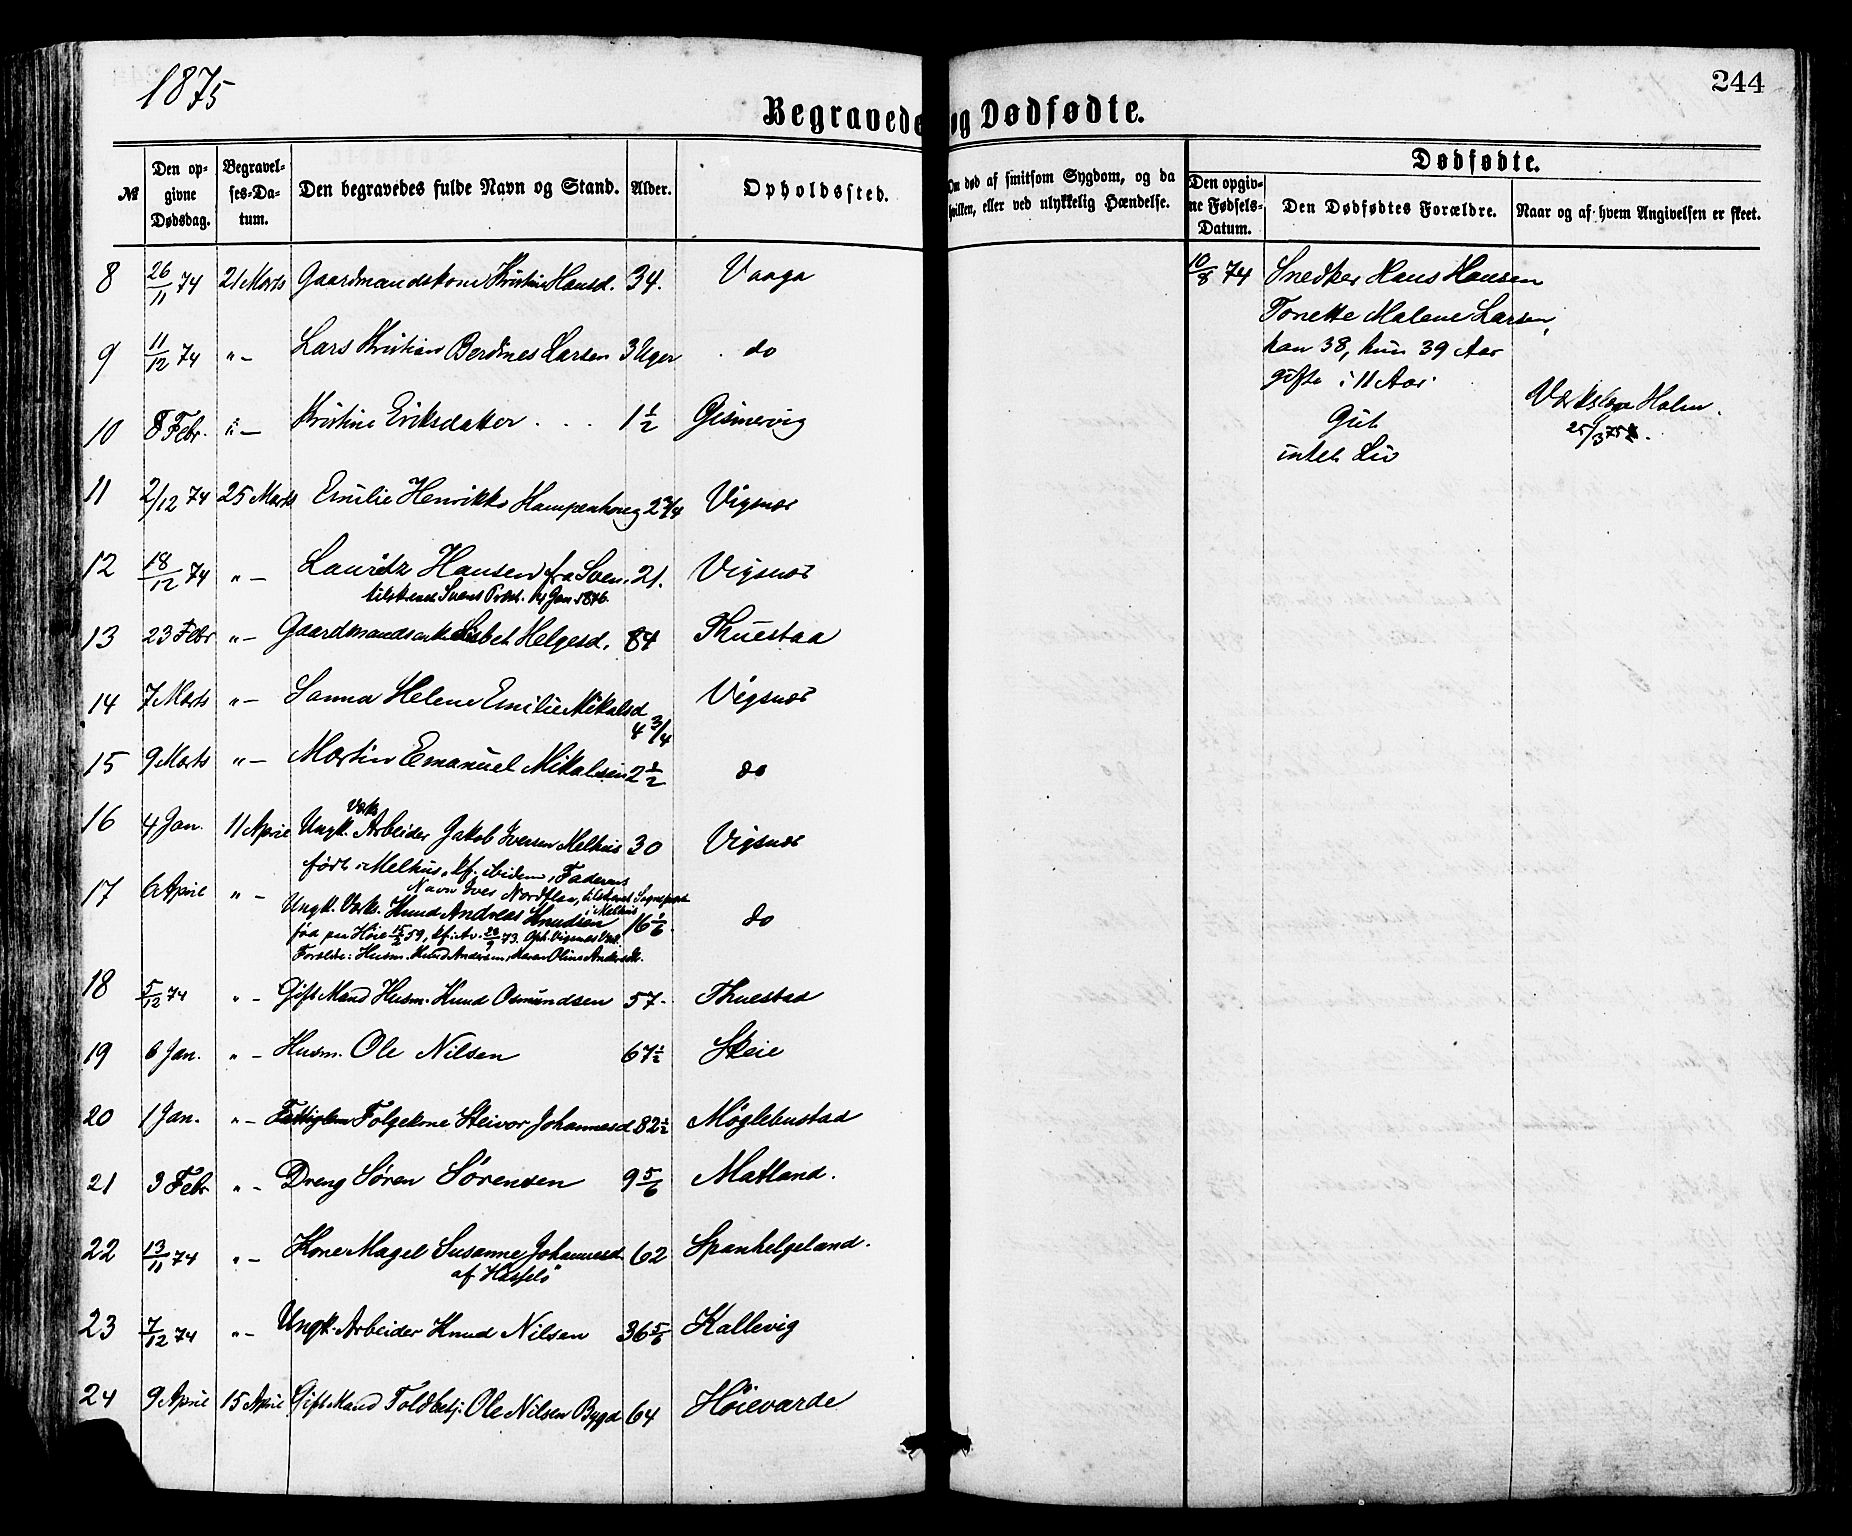 1875
244
Begravede og Dødfødte.
№ Den opgivne Dødsdag. Begravelses-Datum. Den begravedes fulde Navn og Stand. Alder. Opholdssted. Om død af smitsom Sygdom, og da hvilken, eller ved ulykkelig Hændelse.
Dødfødte.
Den opgivne Fødsels-Datum. Den Dødfødtes Forældre. Naar og af hvem Angivelsen er skeet.
8 26/11 74 21 Marts Gaardmandskone Kristine Hansd. 34. Vaaga
9 11/12 74 " — Lars Kristian Berdines Larsen 3 Uger do
10 8 Febr. " — Kristine Eriksdatter . . . 1 1/2 Gismervig
11 2/12 74 25 Marts Emilie Henrikke Hampenhoug 2 3/4 Vigsnæs
12 18/12 74 " — Lauritz Hansen fra Sven. 21. Vigsnæs
tilskrevet Svens Præst. 14 Jan 1876.
13 23 Febr " — Gaardmandsenke Lisbet Helgesd. 84 Thuestaa
14 7 Marts " — Sanna Helene Emilie Mikalsd 4 3/4 Vigsnæs
15 9 Marts " — Martin Emanuel Mikalsen 2 1/2 do
16 4 Jan. 11 April Ungk. Værks Arbeider Jakob Iversen Melhus 30 Vigsnæs
født i Melhus, kf. ibidem, Faderens
Navn Iver Nordflaa, tilskrevet Sognepræst
i Melhus
17 6 April " — Ungk. Værk. Knud Andreas Knudsen 16 1/6 do
fød paa Høie 15/2 59, kf. i Av. 28/9 73. Oph. Vigsnes Værk.
Forældre: Husm. Knud Andersen, Karen Oline Andersdtr.
18 5/12 74 " — Gift Mand Husm. Knud Osmundsen 57. Thuestad
19 6 Jan. " — Husm. Ole Nilsen 67 1/2 Skeie
20 1 Jan. " — Fattiglem Folgekone Steivor Johannesd 82 1/2 Møglebustad
21 3 Febr " — Dreng Søren Sørensen 9 5/6 Matland.
22 13/11 74 " — Kone Magel Susanne Johannesd 62 Spanhelgeland.
af Hasselø
23 7/12 74 " — Ungk. Arbeider Knud Nilsen 36 5/6 Kallevig
24 9 April 15 April Gift Mand Toldbetj. Ole Nilsen Bygd 64 Høievarde
10/8 74 Snedker Hans Hansen
Tonette Malene Larsen,
han 38, hun 39 Aar
gifte i 11 Aar.
Gut
intet Liv
Værkslæge Holm.
25/3 75.